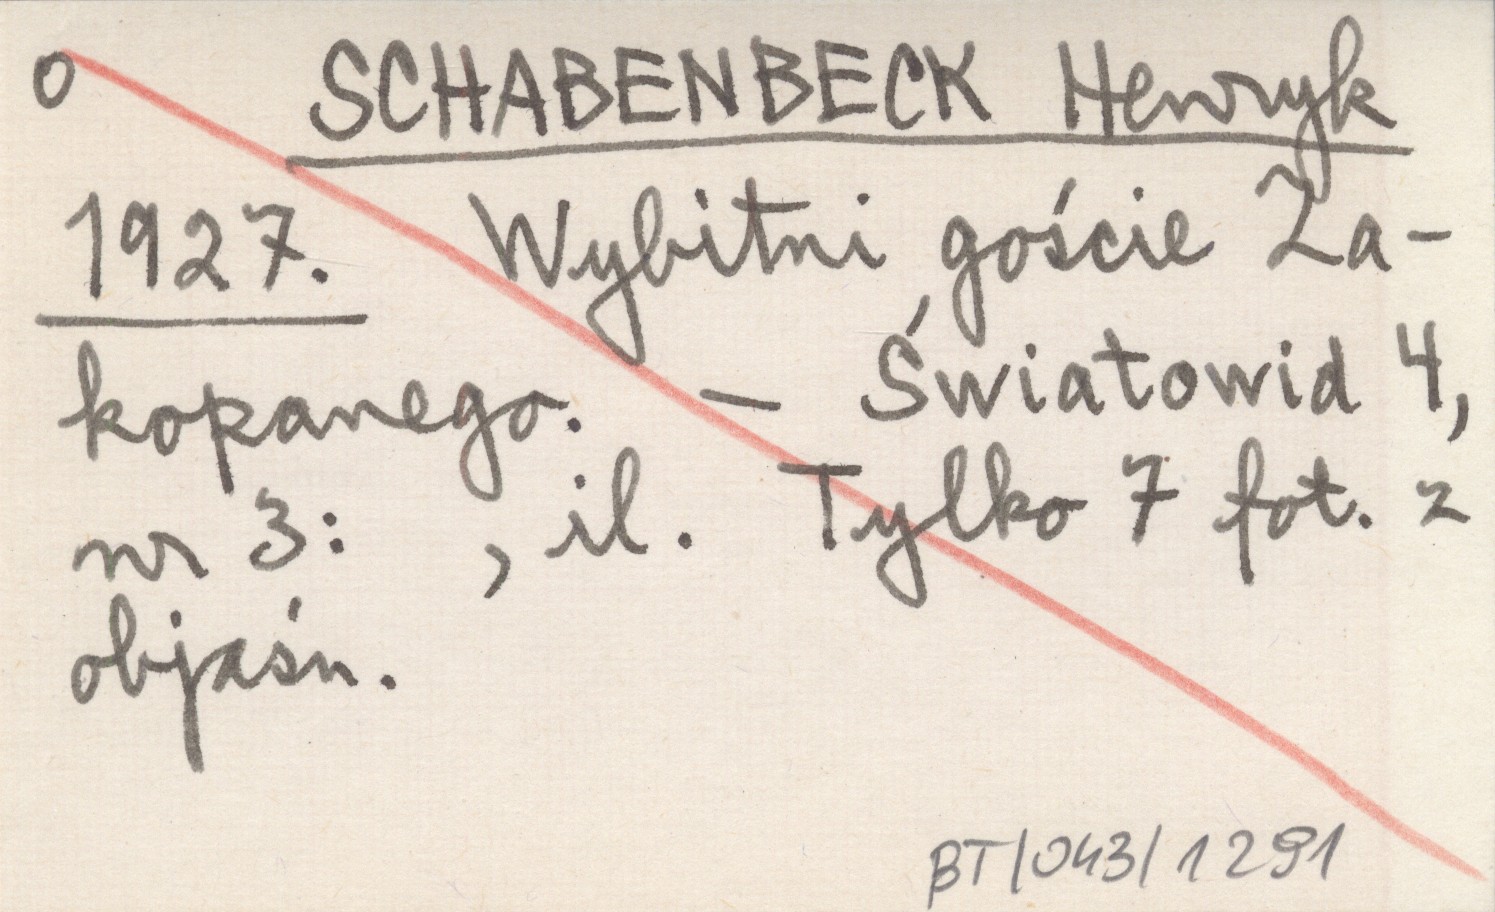 o SCHABENBECK Henryk
1927. Wybitni goście Za-
kopanego. – Światowid 4,
nr 3: , il. Tylko 7 fot. z
objaśn.
BT/043/1291